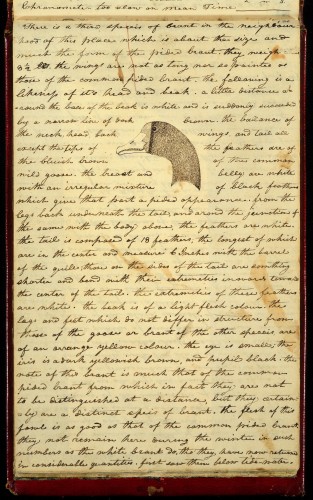 Chronometer too slow on mean Time
There is a third species of brant in the neighbour-
hood of this place which is about the size and
much the form of the pided brant. they weigh
8½ lbs. the wings are not as long nor so pointed as
those of the common pided brant. the following is a
likeness of it's head and beak. a little distance
around the base of the beak is white and is suddonly succeeded
by a narrow line of dark brown. the ballance of
the neck, head back wings, and tail all
except the tips of the feathers are of
the bluish brown of the common
wild goose. the breast and belly are white
with an irregular mixture of black feathers
which give that part a pided appearance. from the
legs back underneath the tail, and arond the junction of
the same with the body above, the feathers are white.
the tail is composed of 18 feathers; the longest of which
are in the center and measure 6 Inches with the barrel
of the quill; those on the sides of the tail are something
shorter and bend with their extremities inwards towards
the center of the tail. the extremities of these feathers
are white. the beak is of a light flesh colour. the
legs and feet which do not differ in structure from
those of the goose or brant of the other species are
of an orange yellow colour. the eye is small; the
iris is a dark yellowish brown, and pupil black. the
note of this brant is much that of the common
pided brant from which in fact they are not
to be distinguished at a distance, but they certain-
ly are a distinct specis of brant. the flesh of this
fowl is as good as that of the common pided brant.
they not remain here during the winter in such
numbers as the white brant do, tho' they have now returned
in considerable quantities. first saw them below tide-water.